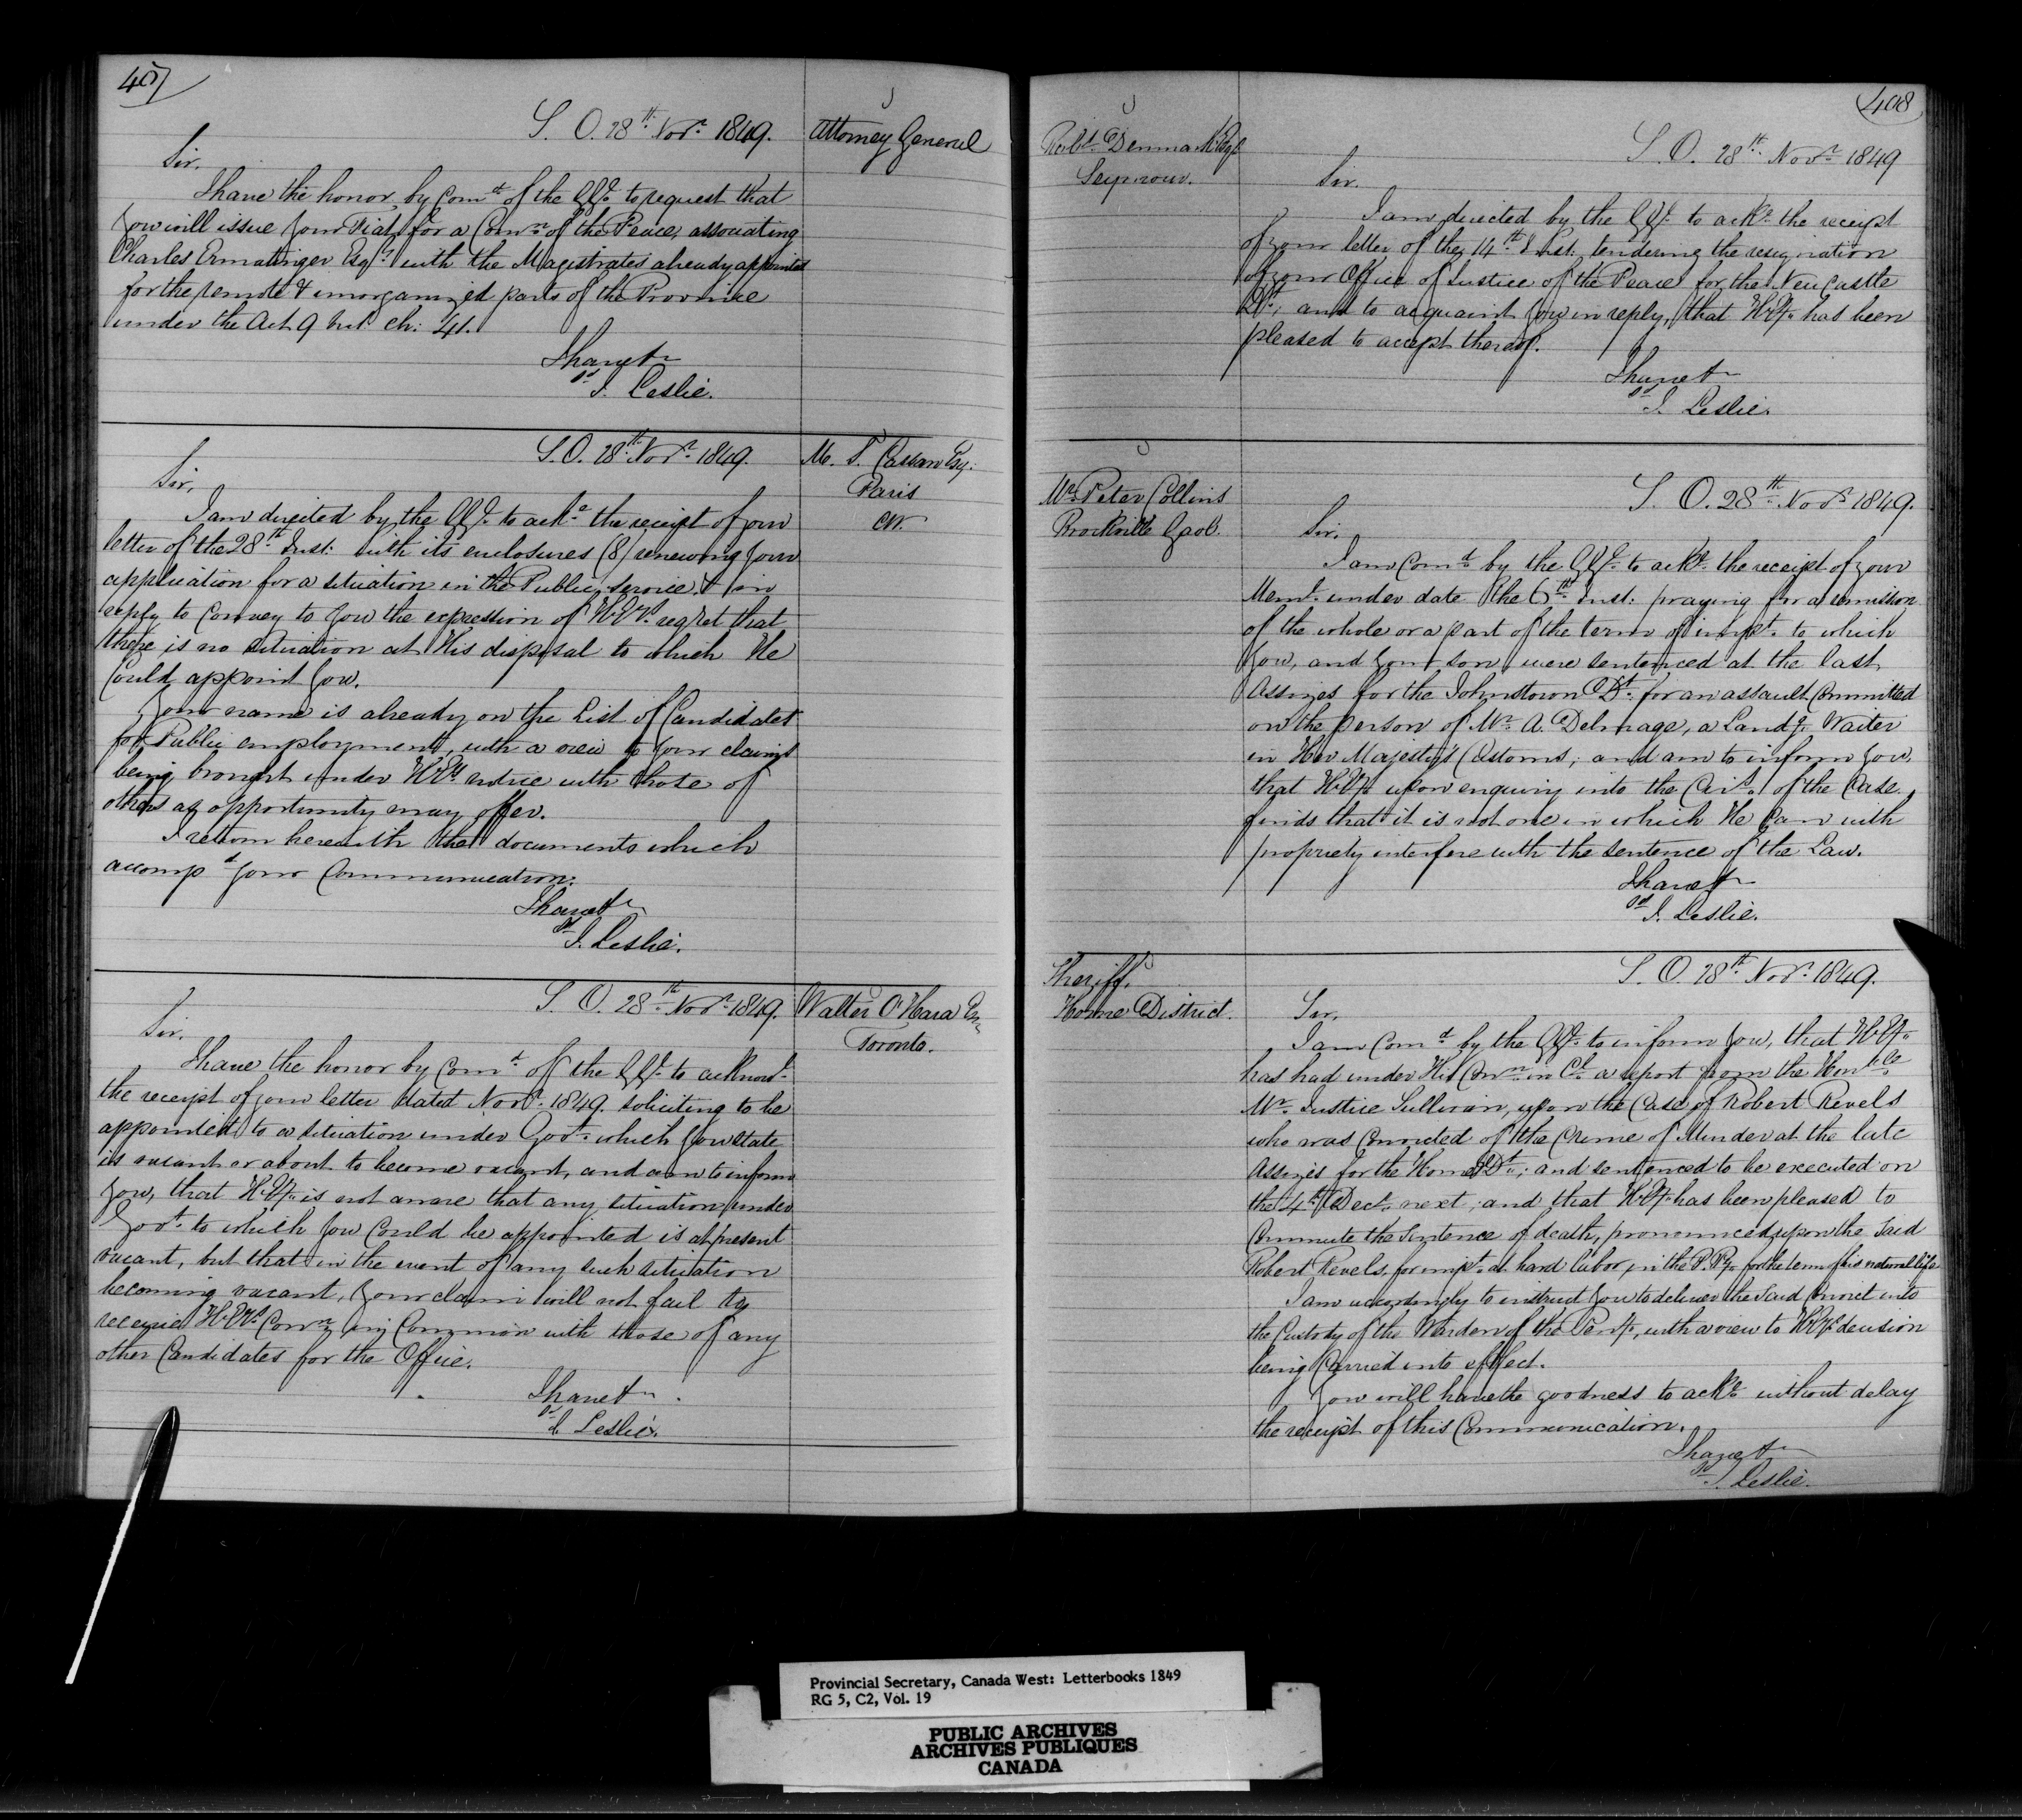 407
S. O. 28th Novr. 1849.
Attorney General
Sir,
I have the honor, by Comd. of the GG. to request that
you will issue your Fiat for a Comn. of the Peace, associating
Charles Ermatinger Esqr. with the Magistrates already appointed
for the remote & unorganized parts of the Province
under the Act 9 Vict. ch: 41.
I have &c
sd J. Leslie.
S. O. 28th Novr. 1849.
M. S. Cassan Esq.
Paris
CW.
Sir,
I am directed by the GG. to acke. the receipt of your
letter of the 28th Inst: with its enclosures (8) renewing your
application for a situation in the Public service & in
reply to convey to you the expression of H.E's. regret that
there is no situation at His disposal to which He
could appoint you.
Your name is already on the List of Candidates
for Public employment, with a view to your claims
being brought under H.E's notice with those of
others as opportunity may offer.
I return herewith the documents which
accompd your Communication.
I have &c
sd J. Leslie.
S. O. 28th Novr. 1849.
Walter O'Hara Esq
Toronto.
Sir,
I have the honor by Comd. of the GG. to acknow.
the receipt of your letter dated Novr. 1849. soliciting to be
appointed to a situation under Govt. which you state
is vacant or about to become vacant, and am to inform
you, that H.Ey. is not aware that any situation under
Govt. to which you could be appointed is at present
vacant, but that in the event of any such situation
becoming vacant, your claim will not fail to
receive H.E's. Conn. in Common with those of any
other Candidates for the Office.
I have &c
sd J. Leslie.
408
Robt. Denmark Esqr
Seymour.
S. O. 28th Novr. 1849
Sir.
I am directed by the GG. to acke. the receipt
of your letter of the 14th Inst. tendering the resignation
of your Office of Justice of the Peace for the Newcastle
Dt., and to acquaint you in reply, that H.Ey. has been
pleased to accept thereof.
I have &c
sd J. Leslie.
Mr. Peter Collins
Brockville Gaol.
S. O. 28th Novr. 1849.
Sir,
I am Comd. by the GG. to acke. the receipt of your
Meml. under date the 6th Inst: praying for a remission
of the whole or a part of the term of impt. to which
you, and your son were sentenced at the last
Assizes for the Johnstown Dt. for an assault Committed
on the person of Mr. A. Delmage, a Landg. Waiter
in Her Majesty's Customs; and am to inform you,
that H.Ey. upon enquiry into the Cirs. of the Case
finds that it is not one in which He Can with
propriety interfere with the sentence of the Law.
I have &c
sd J. Leslie.
Sheriff.
Home District.
S. O. 28th Novr. 1849.
Sir,
I am Comd by the GG. to inform you, that H.Ey.
has had under His Conn. in Cl. a report from the Honble
Mr. Justice Sullivan, upon the Case of Robert Revels
who was Convicted of the Crime of Murder at the late
Assizes for the Home Dt., and sentenced to be executed on
the 4th Decr. next, and that H.Ey. has been pleased to
Commute the Sentence of death, pronounced upon the said
Robert Revels, for impt. at hard labor, in the P. Py. for the term of his natural life
I am accordingly to instruct you to deliver the said Convict into
the Custody of the Warden of the Peny., with a view to H.E's decision
being Carried into effect.
You will have the goodness to acke. without delay
the receipt of this Communication.
I have &c
sd J. Leslie.
Provincial Secretary, Canada West: Letterbooks 1849
RG 5, C2, Vol. 19
PUBLIC ARCHIVES
ARCHIVES PUBLIQUES
CANADA